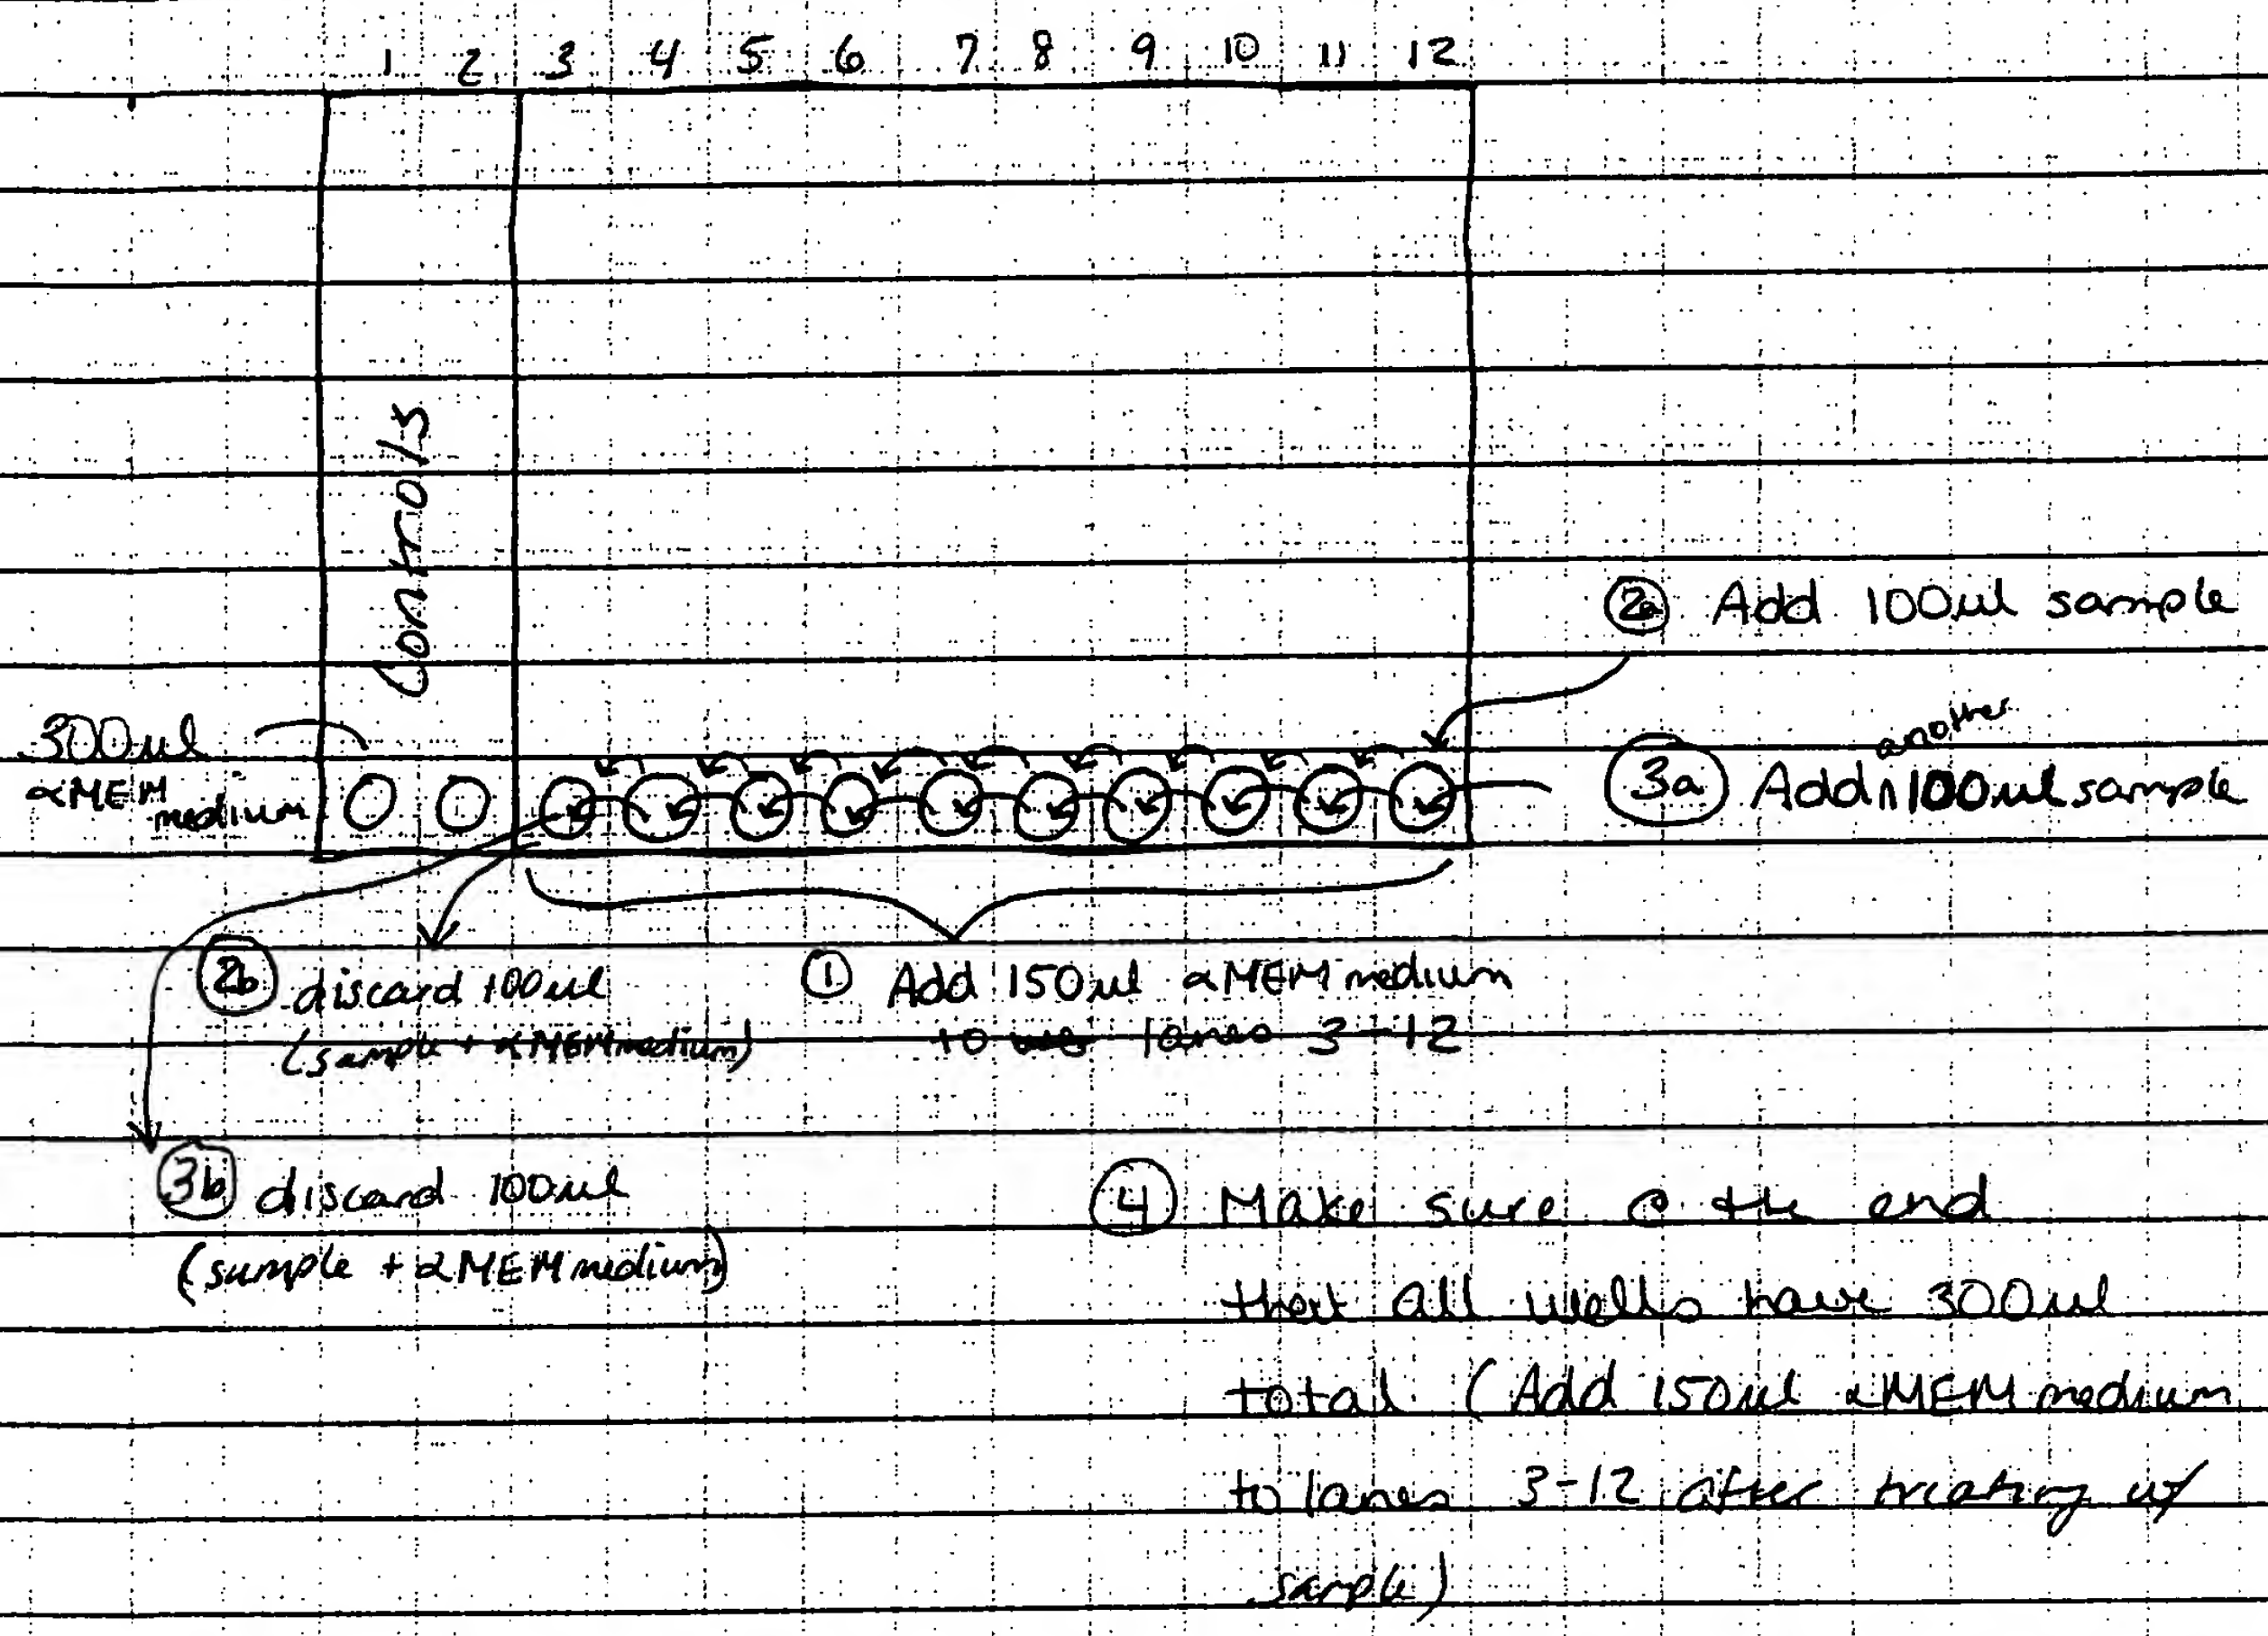 1 2 3 4 5 6 7 8 9 10 11 12
Controls
2a Add 100ul sample
300ul
αMEM
medium
another
3a Add ∧ 100ul sample
2b discard 100ul
(sample + αMEM medium)
1 Add 150ul αMEM medium
to lanes 3-12
3b discard 100ul
(sample + αMEM medium)
4 Make sure @ the end
that all wells have 300ul
total (Add 150ul αMEM medium
to lanes 3-12 after treating w/
sample)